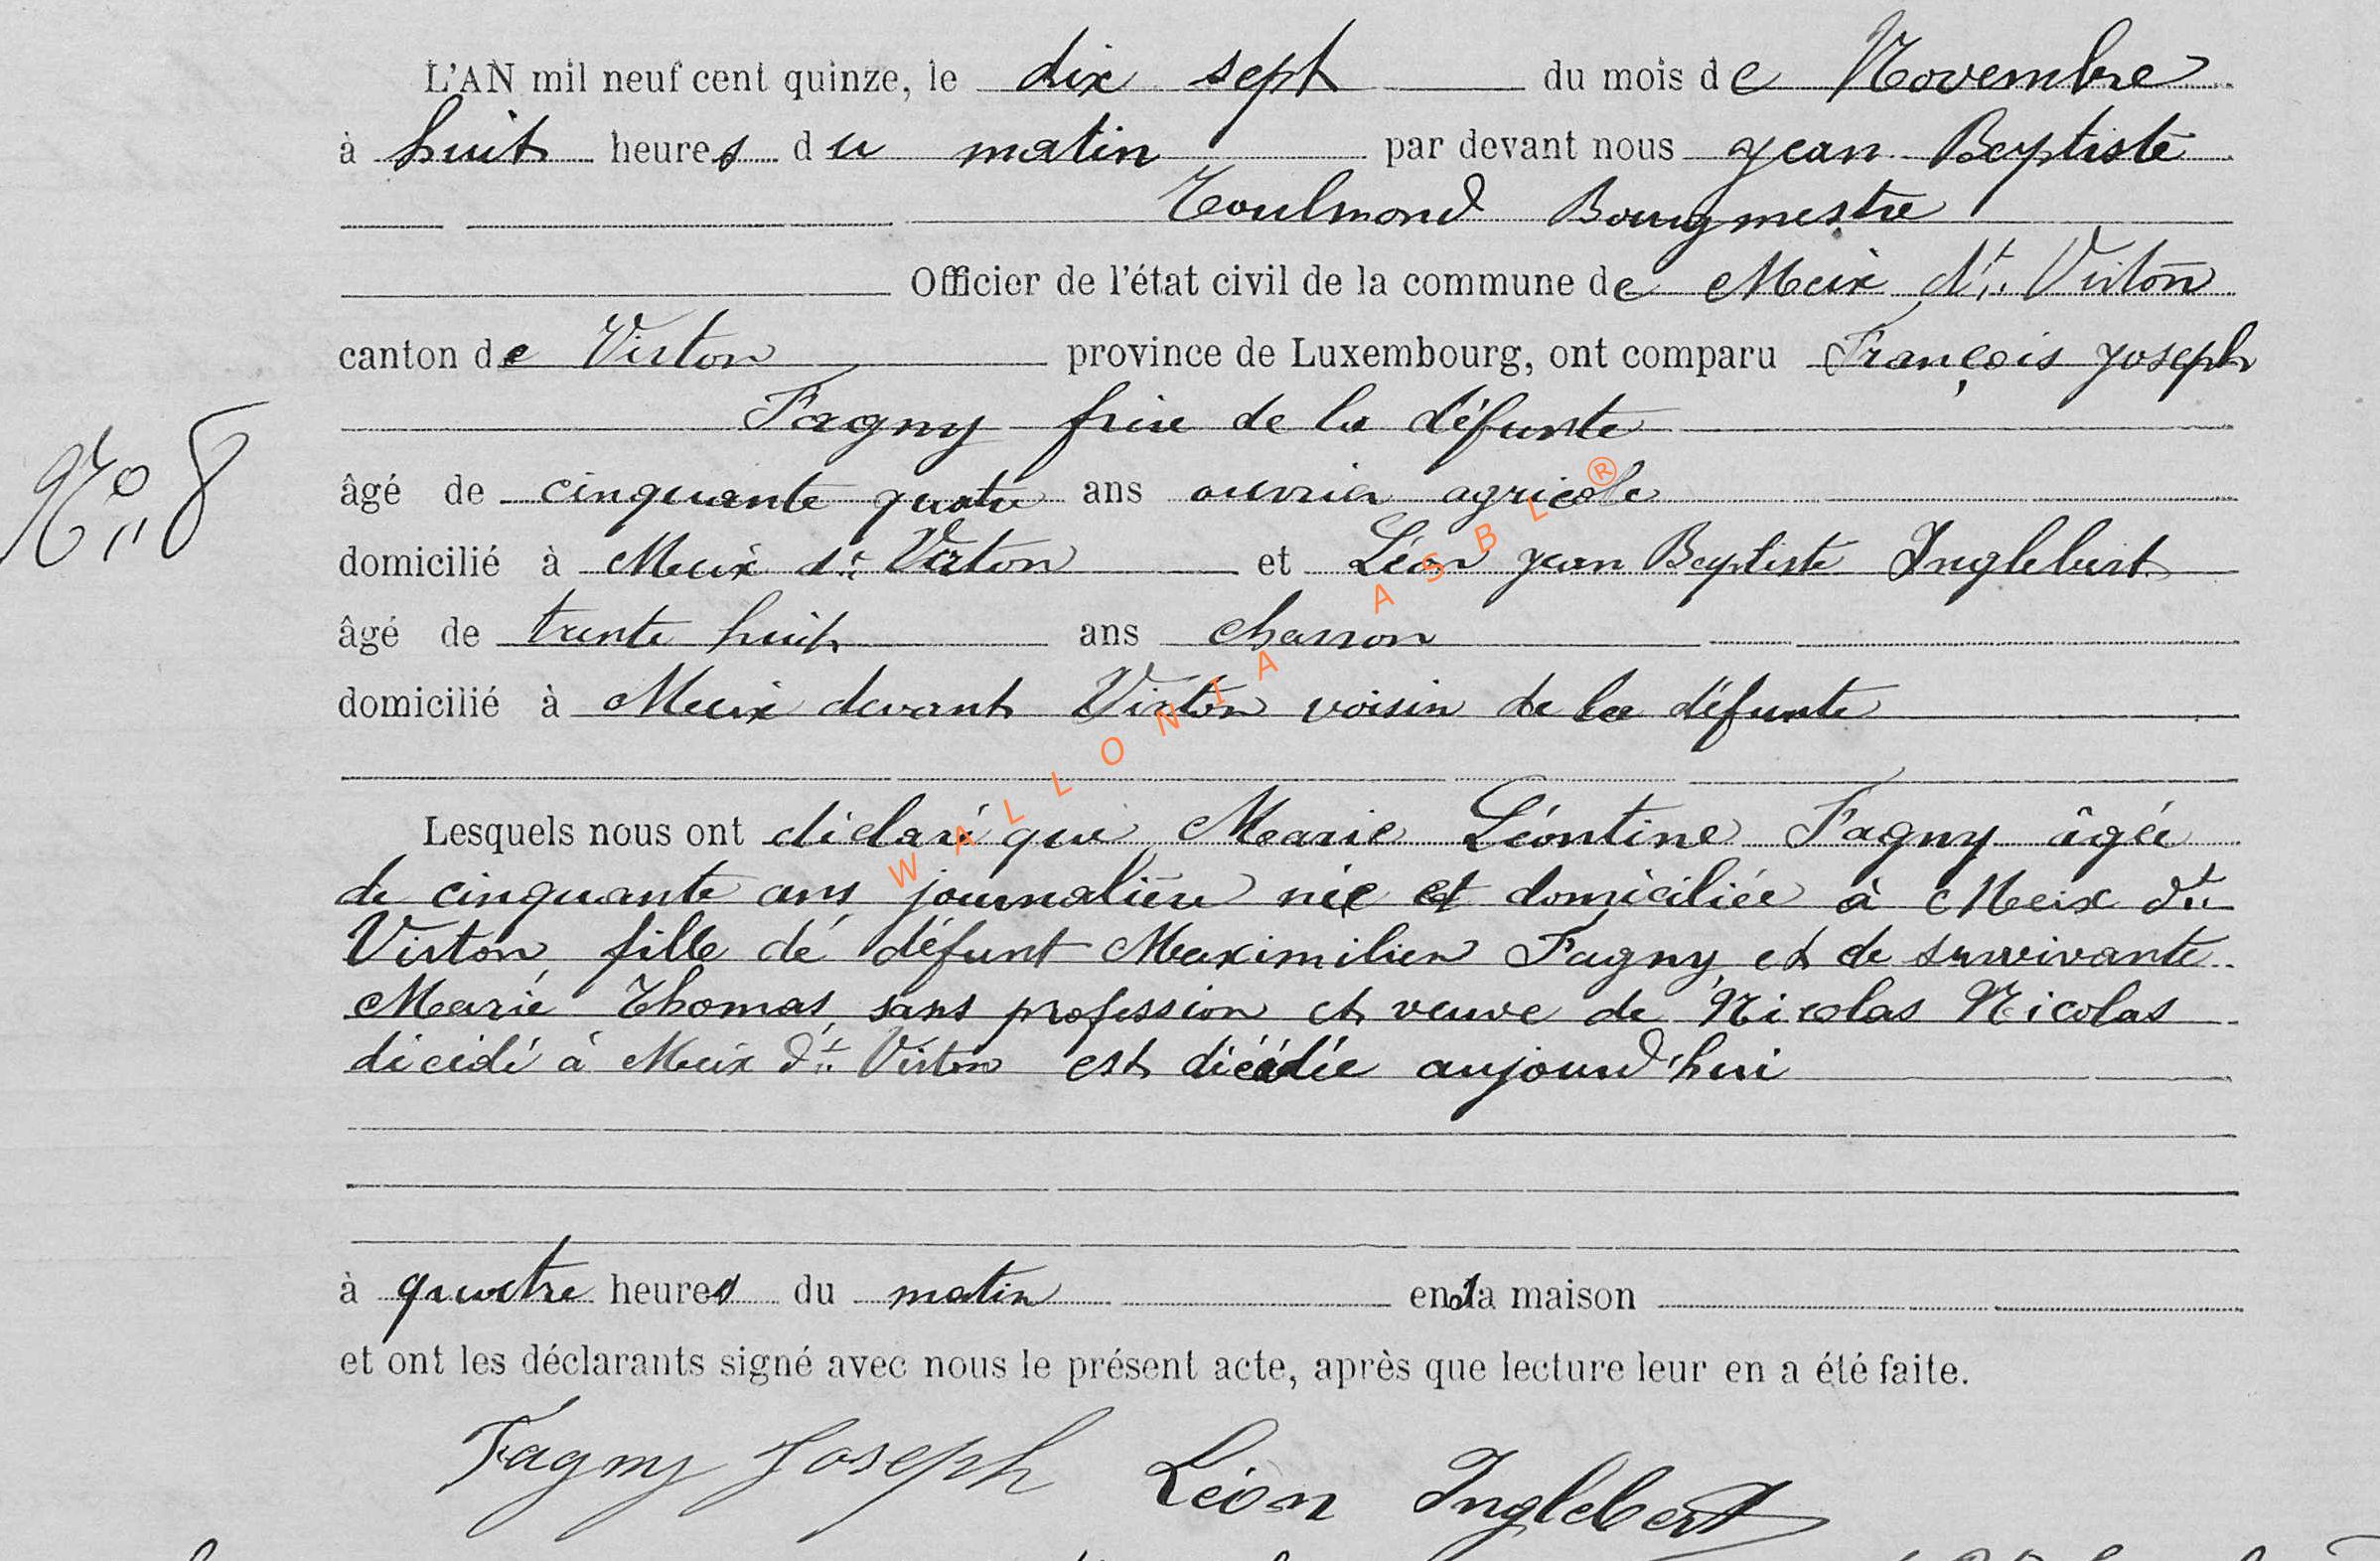 L'AN mil neuf cent quinze, le dix sept du mois de Novembre
à huit heures du matin par devant nous Jean Baptiste
Toulmond Bourgmestre
Officier de l'état civil de la commune de Meix dt. Virton
canton de Virton province de Luxembourg, ont comparu François Joseph
Fagny frère de la défunte
No 8
âgé de cinquante quatre ans ouvrier agricole
domicilié à Meix dt Virton et Léon Jean Baptiste Inglebert
âgé de trente huit ans charron
domicilié à Meix devant Virton voisin de la défunte
WALLONIA ASBL ®
Lesquels nous ont déclaré que Marie Léontine Fagny âgée
de cinquante ans journalière née et domiciliée à Meix dt
Virton, fille de défunt Maximilien Fagny et de survivante
Marie Thomas, sans profession et veuve de Nicolas Nicolas
décédé à Meix dt Virton est décédée aujourd'hui
à quatre heures du matin en sa maison
et ont les déclarants signé avec nous le présent acte, après que lecture leur en a été faite.
Fagny Joseph Léon Inglebert